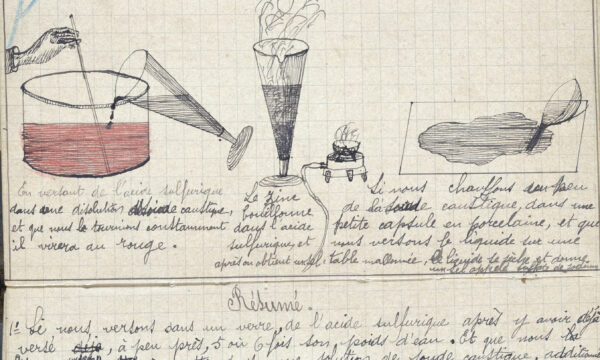 En versant de l'acide sulfurique
dans une disolution caustique,
et que nous la tournions constamment
il virera au rouge.
Le Zinc
bouillonne
dans l'acide
sulfurique, et
après on obtient un sel.
Si nous chauffons un peu
de la soude caustique, dans une
petite capsule en porcelaine, et que
nous versons le liquide sur une
table mallonnée, le liquide se fige et donne
un sel appelé
Résumé.
1º Si nous, versons dans un verre, de l'acide sulfurique après y avoir déjà
versé, à peu près, 5 où 6 fois son, poids d'eau. Et que nous
une solution de soude caustique, additionn